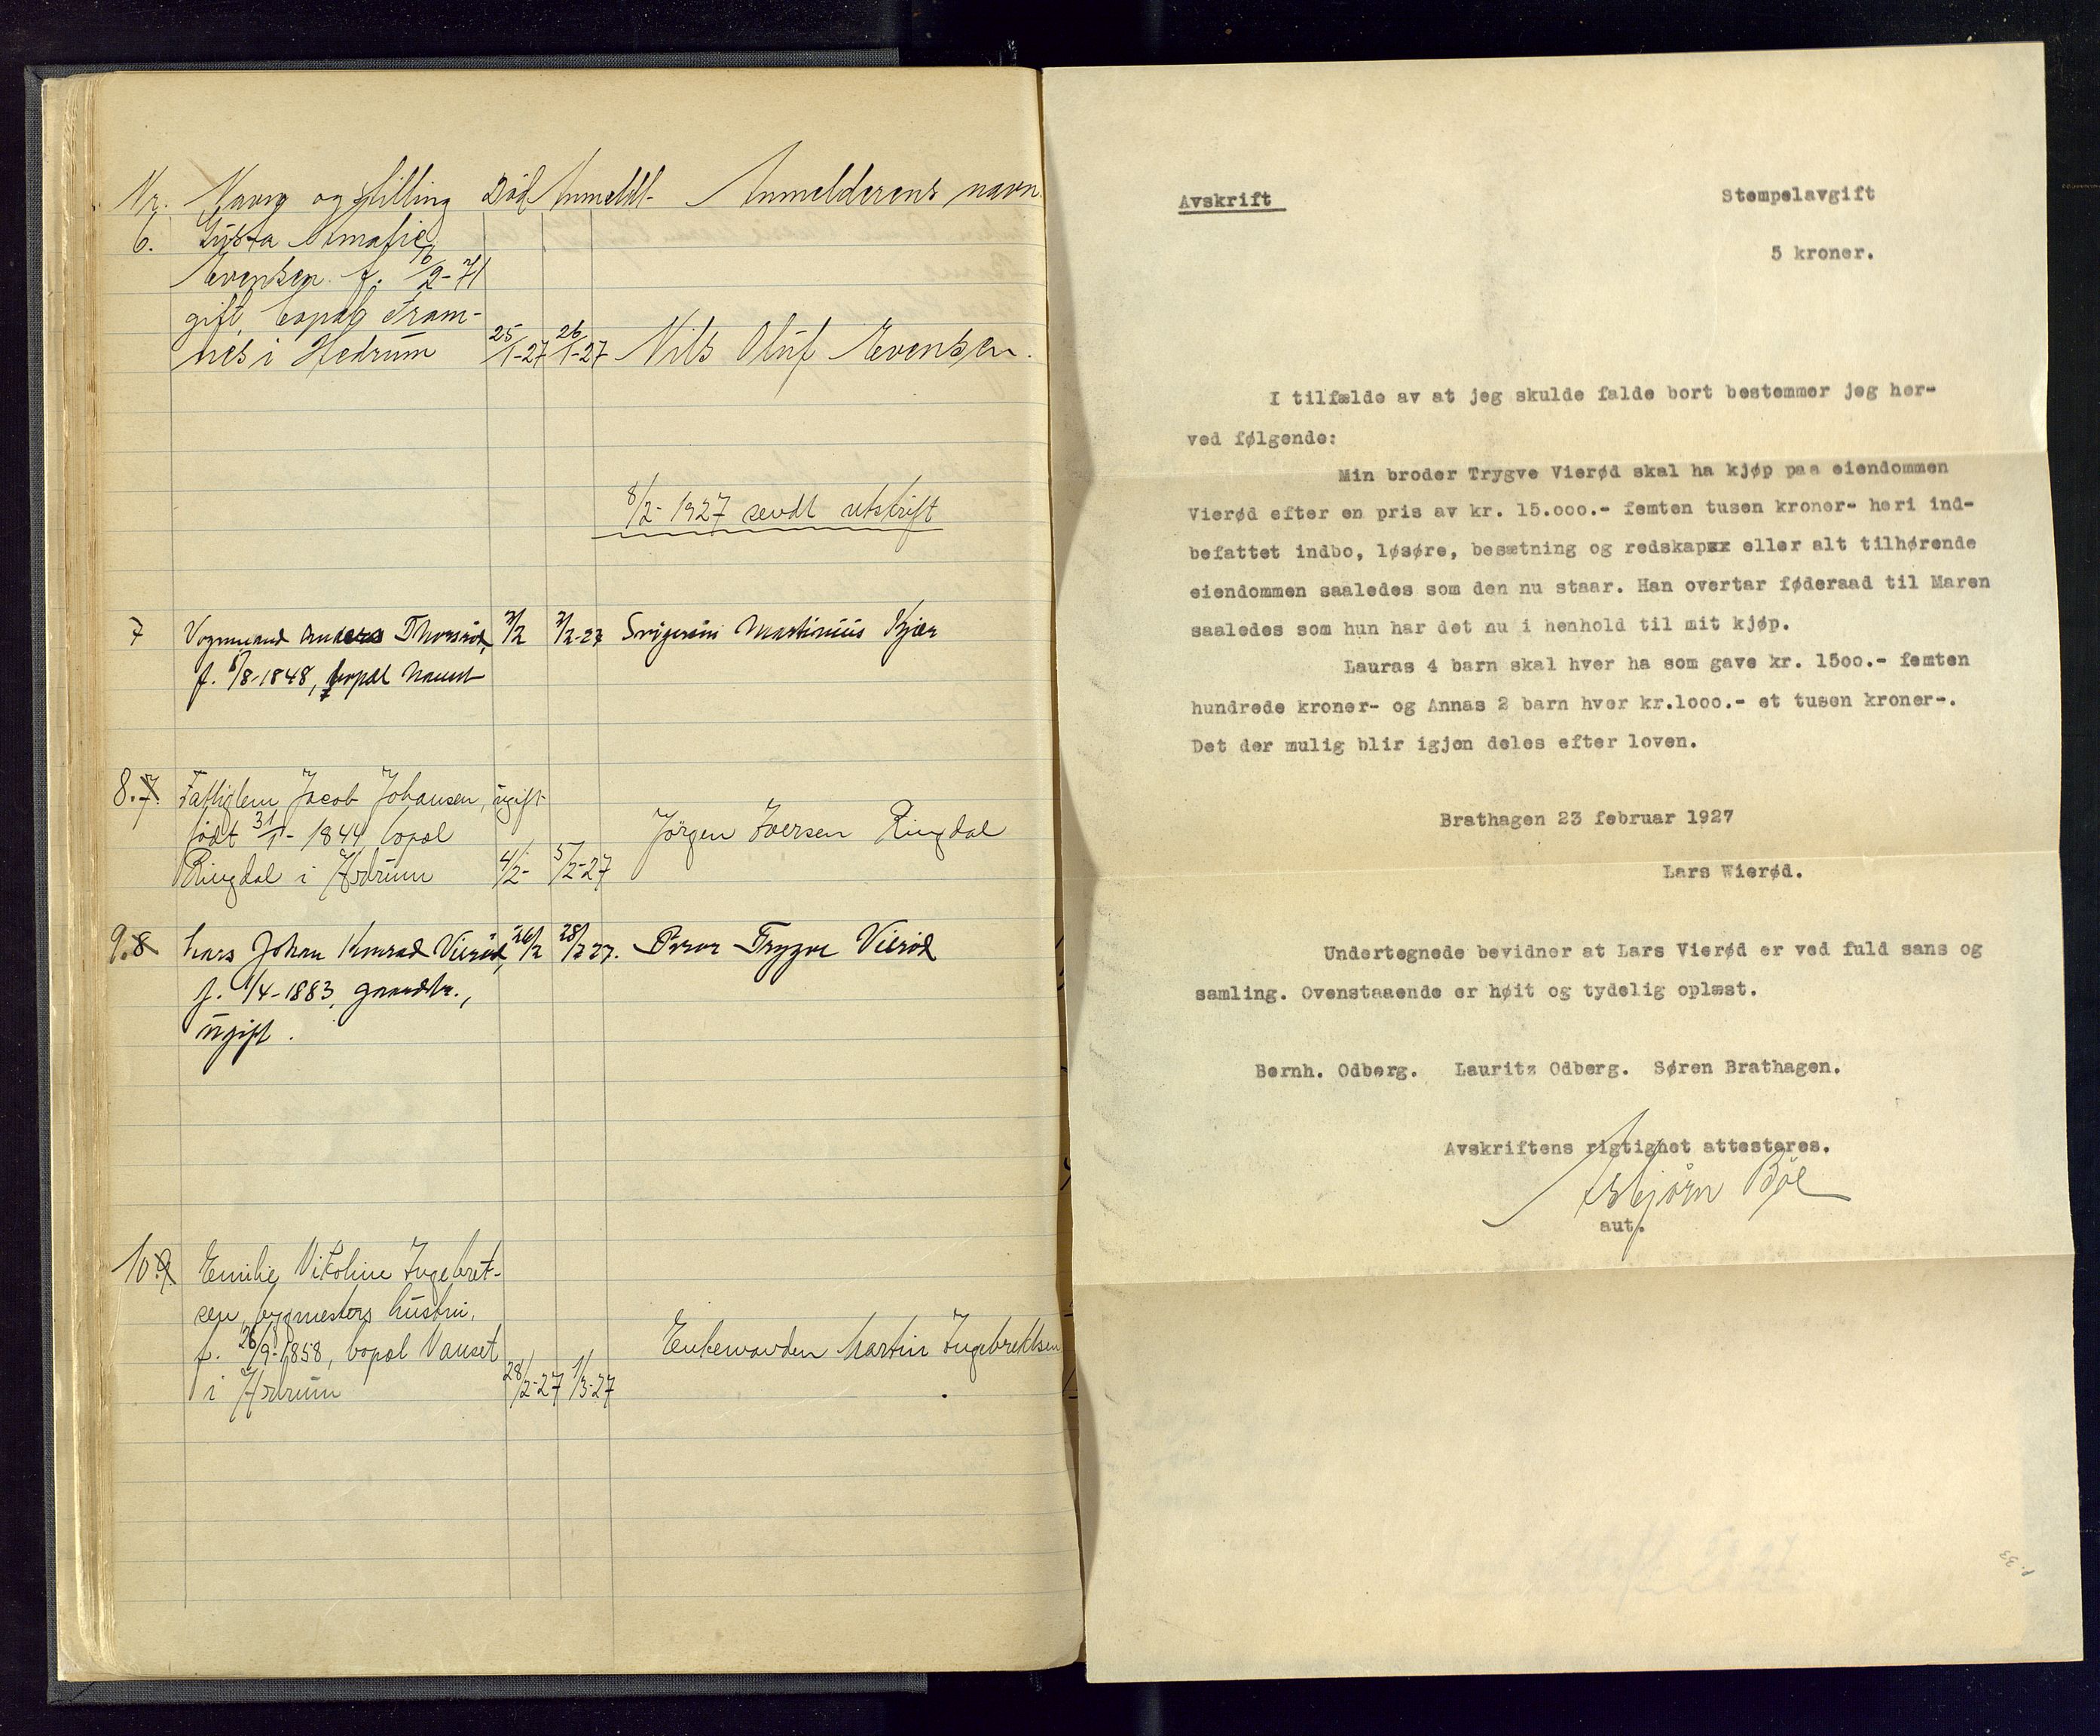 Nr. Navn og stilling Död Anmeldt Anmelderens navn.
6. Gusta Amafie
Evensen f. 16/9-71
gift, bopæl Fram-
nes i Hedrum 25/1-27 26/1-27 Nils Oluf Evensen.
8/2-1927 sendt utskrift
7 Vognmand Anders Thorsrød, 2/2 3/2-27 Svigersøn Martinius Kjær
f. 8/8-1848, bopæl Nanset
8. 7. Fattiglem Jacob Johansen, ugift
født 31/1-1844 bopæl Jörgen Iversen Ringdal
Ringdal i Hedrum 4/2- 5/2-27
9. 8 Lars Johan Konrad Vierød, 26/2 28/2 27. Bror Trygve Vierød
f. 1/4-1883, gaardbr.,
ugift.
10. 9 Emilie Nikoline Ingebret-
sen, bygmesters hustru,
f. 26/9-1858, bopæl Nanset Enkemanden Martin Ingebretsen
i Hedrum 28/2-27 1/3-27
Avskrift Stempelavgift
5 kroner.
I tilfælde av at jeg skulde falde bort bestemmer jeg her-
ved følgende:
Min broder Trygve Vierød skal ha kjøp paa eiendommen
Vierød efter en pris av kr. 15.000.- femten tusen kroner- heri ind-
befattet indbo, løsøre, besætning og redskapxx eller alt tilhørende
eiendommen saaledes som den nu staar. Han overtar føderaad til Maren
saaledes som hun har det nu i henhold til mit kjøp.
Lauras 4 barn skal hver ha som gave kr. 1500.- femten
hundrede kroner- og Annas 2 barn hver kr.1000.- et tusen kroner-.
Det der mulig blir igjen deles efter loven.
Brathagen 23 februar 1927
Lars Wierød.
Undertegnede bevidner at Lars Vierød er ved fuld sans og
samling. Ovenstaaende er høit og tydelig oplæst.
Bernh. Odberg. Lauritz Odberg. Søren Brathagen.
Avskriftens rigtighet attesteres.
Asbjørn Bøe
aut.
P. 33